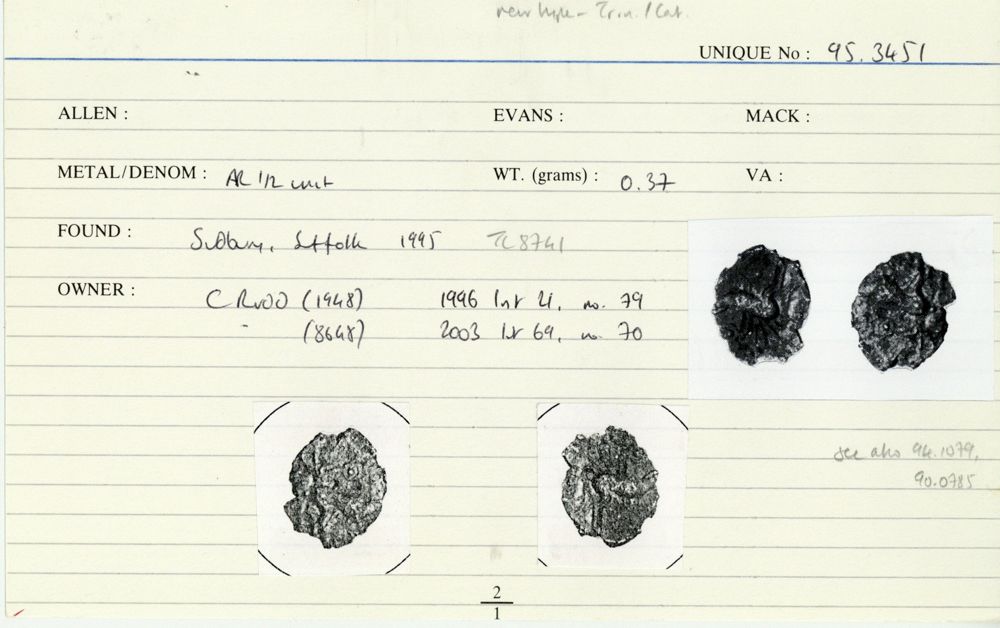 new type - Trin./Cat.
UNIQUE No : 95.3451
ALLEN : EVANS : MACK :
METAL/DENOM : AR 1/2 unit WT. (grams) : 0.37 VA :
FOUND : Sudbury, Suffolk 1995 TL8741
OWNER : C Rudd (1948) 1996 list 21, no. 79
" (8648) 2003 list 69, no. 70
see also 94.1079,
90.0785
2
1